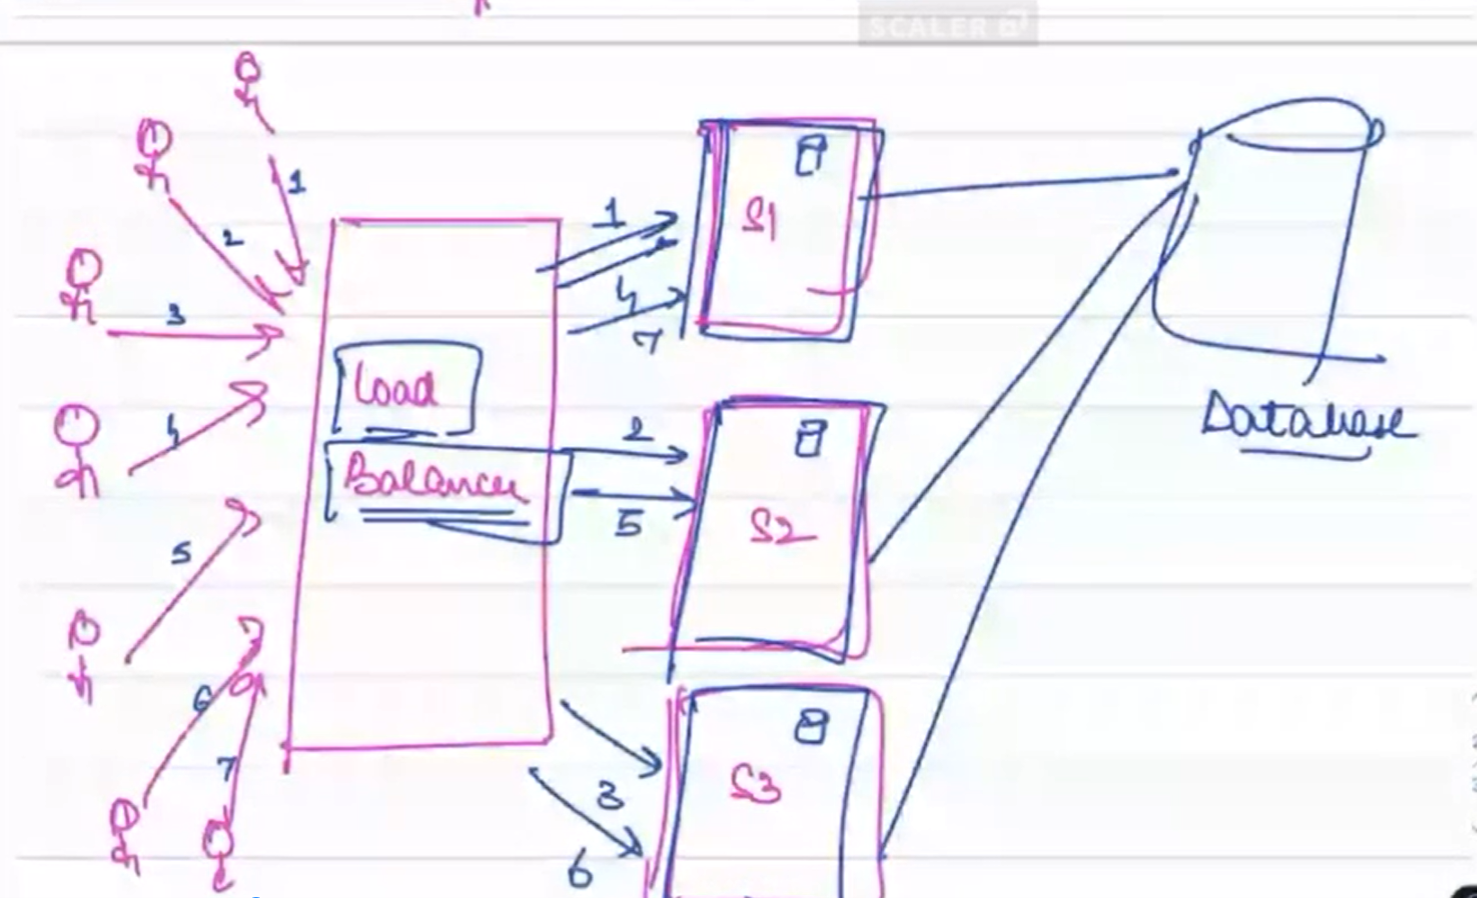 SCALER
1
2
3
4
5
6
7
Load
Balancer
1
4
7
2
5
3
6
S1
S2
S3
Database